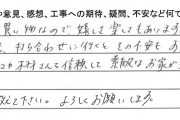 や意見、感想、工事への期待、疑問、不安など何で
買い物なので嬉しく楽しくもあります
打ち合わせに行くと その不安も
木材さんを信頼して 素敵なお家が
下さい。よろしくお願いします。